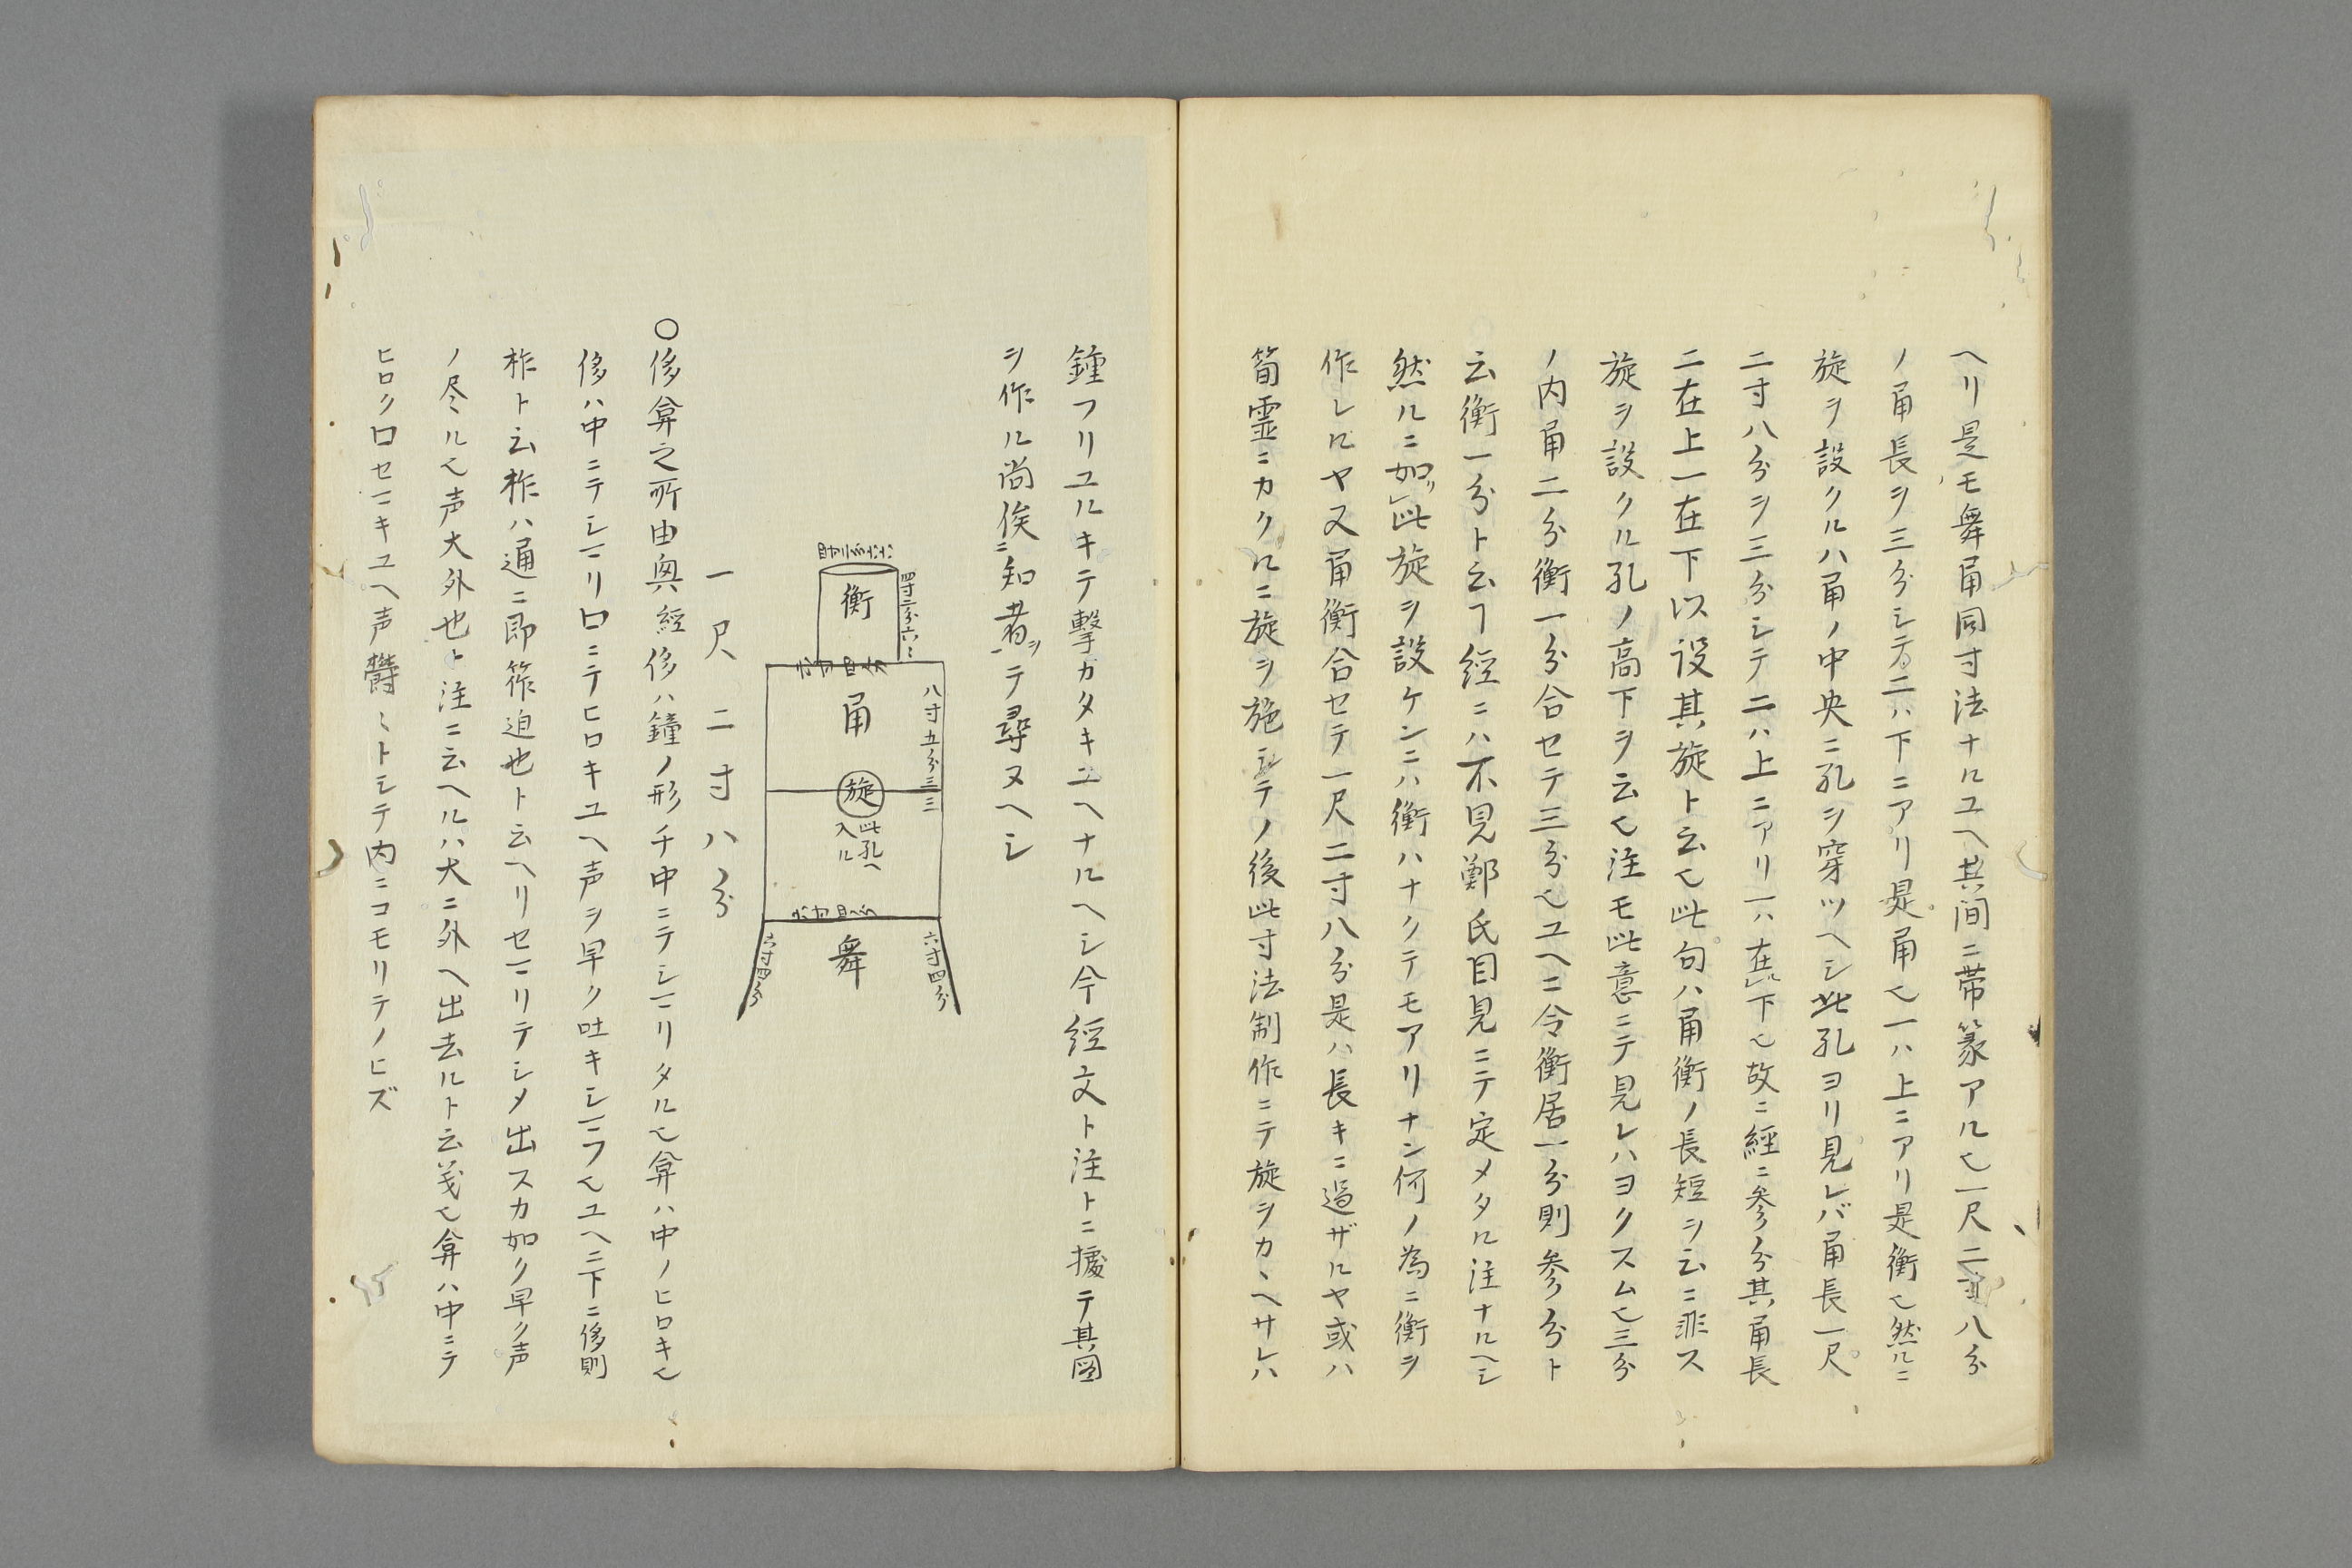 ヘリ是モ舞甬同寸法ナルユヘ其间ニ帯篆アル也一尺二寸八分
ノ甬長ヲ三分シテ二ハ下ニアリ是甬也一ハ上ニアリ是衡也然ルニ
旋ヲ設クルハ甬ノ中央ニ孔ヲ穿ツヘシ此孔ヨリ見レバ甬長一尺
二寸八分ヲ三分シテ二ハ上ニアリ一ハ在下也故ニ經ニ参分其甬長
二在上一在下以设其旋ト云也此句ハ甬衡ノ長短ヲ云ニ非ス
旋ヲ設クル孔ノ高下ヲ云也注モ此意ニテ見レハヨクスム也三分
ノ内甬二分衡一分合セテ三分也ユヘニ令衡居一分則参分ト
云衡一分ト云ヿ經ニハ不見鄭氏目見ニテ定メタル注ナルヘシ
然ルニ如此旋ヲ設ケンニハ衡ハナクテモアリナン何ノ為ニ衡ヲ
作レルヤ又甬衡合セテ一尺二寸八分是ハ長キニ過ザルヤ或ハ
筍霊ニカクルニ旋ヲ施シテノ後此寸法制作ニテ旋ヲカヽヘサレハ
鐘フリユルキテ擊ガタキユヘナルヘシ今経文ト注トニ據テ其圖
ヲ作ル尚俟ニ知者ヲテ尋ヌヘシ
四寸二分六ミ
衡
八寸五分三三
甬
旋
此孔ヘ
入ル
舞
六寸四分
六寸四分
一尺二寸八分
○侈弇之所由與經侈ハ鐘ノ形チ中ニテシマリタル也弇ハ中ノヒロキ也
侈ハ中ニテシマリ口ニテヒロキユヘ声ヲ早ク吐キシマフ也ユヘニ下ニ侈則
柞ト云柞ハ通ニ即筰迫也ト云ヘリセマリテシメ出スカ如ク早ク声
ノ尽ルヽ也声大外也ト注ニ云ヘルハ大ニ外ヘ出去ルト云義也弇ハ中ニテ
ヒロク口セマキユヘ声欝ミトシテ内ニコモリテノヒズ